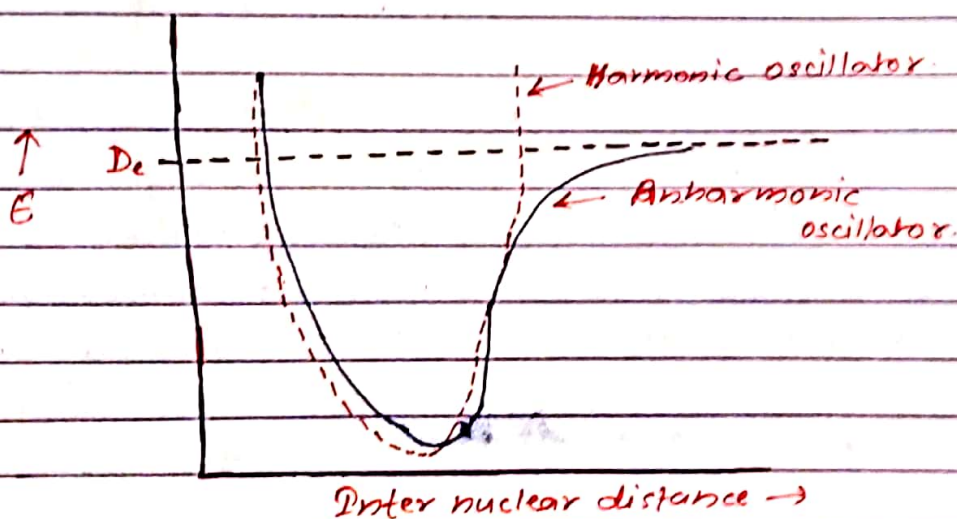 Harmonic oscillator.
De
↑
E
← Anharmonic
oscillator.
Inter nuclear distance →